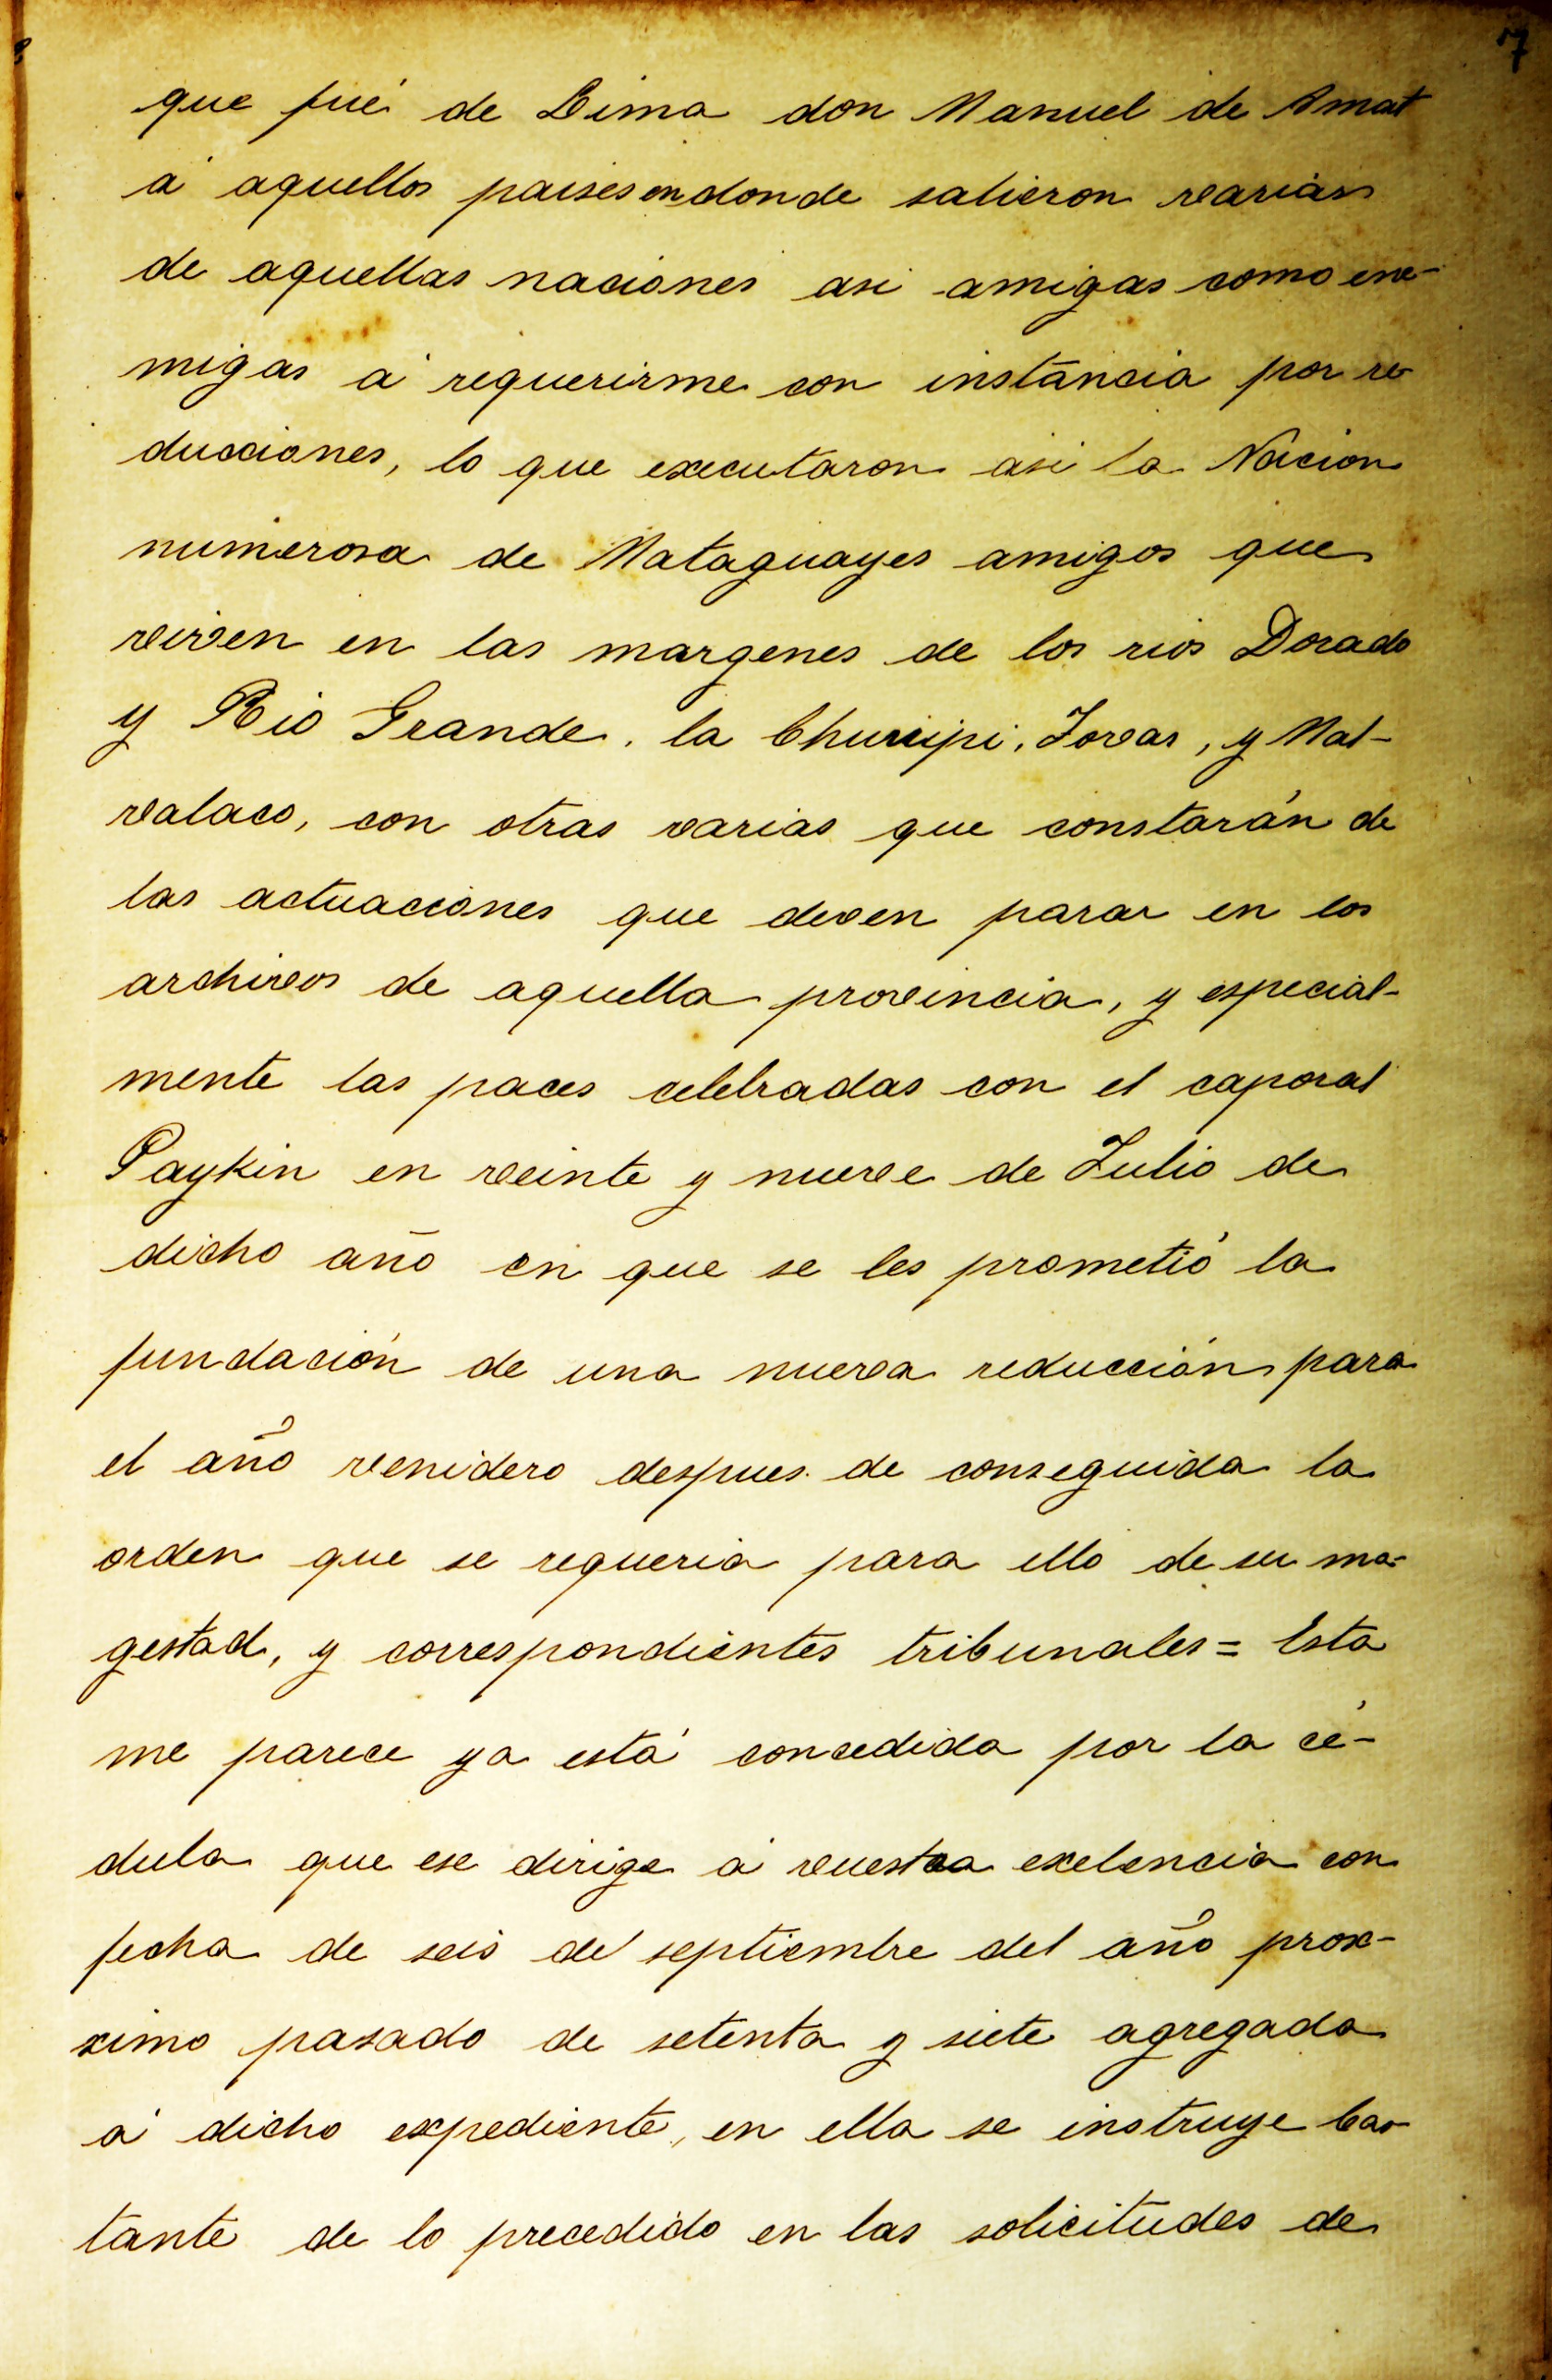 7
que fué de Lima don Manuel de Amat
á aquellos paises en donde salieron varias
de aquellas naciones asi amigas como ene-
migas á requerirme con instancia por re
ducciones, lo que executaron asi la Nacion
numerosa de Mataguayes amigos que
viven en las margenes de los rios Dorado
y Rio Grande, la Chunipi, Tovas, y Mal-
valaco, con otras varias que constarán de
las actuaciones que deven parar en los
archivos de aquella provincia, y especial-
mente las paces celebradas con el caporal
Paykin en veinte y nueve de Julio de
dicho año en que se les prometió la
fundación de una nueva reducción para
el año venidero despues de conseguida la
orden que se requeria para ello de su ma-
gestad, y correspondientes tribunales = Esta
me parece ya está concedida por la cé-
dula que ese dirige á vuestra exelencia con
fecha de seis de septiembre del año prox-
ximo pasado de setenta y siete agregada
á dicho expediente, en ella se instruye bas
tante de lo precedido en las solicitudes de